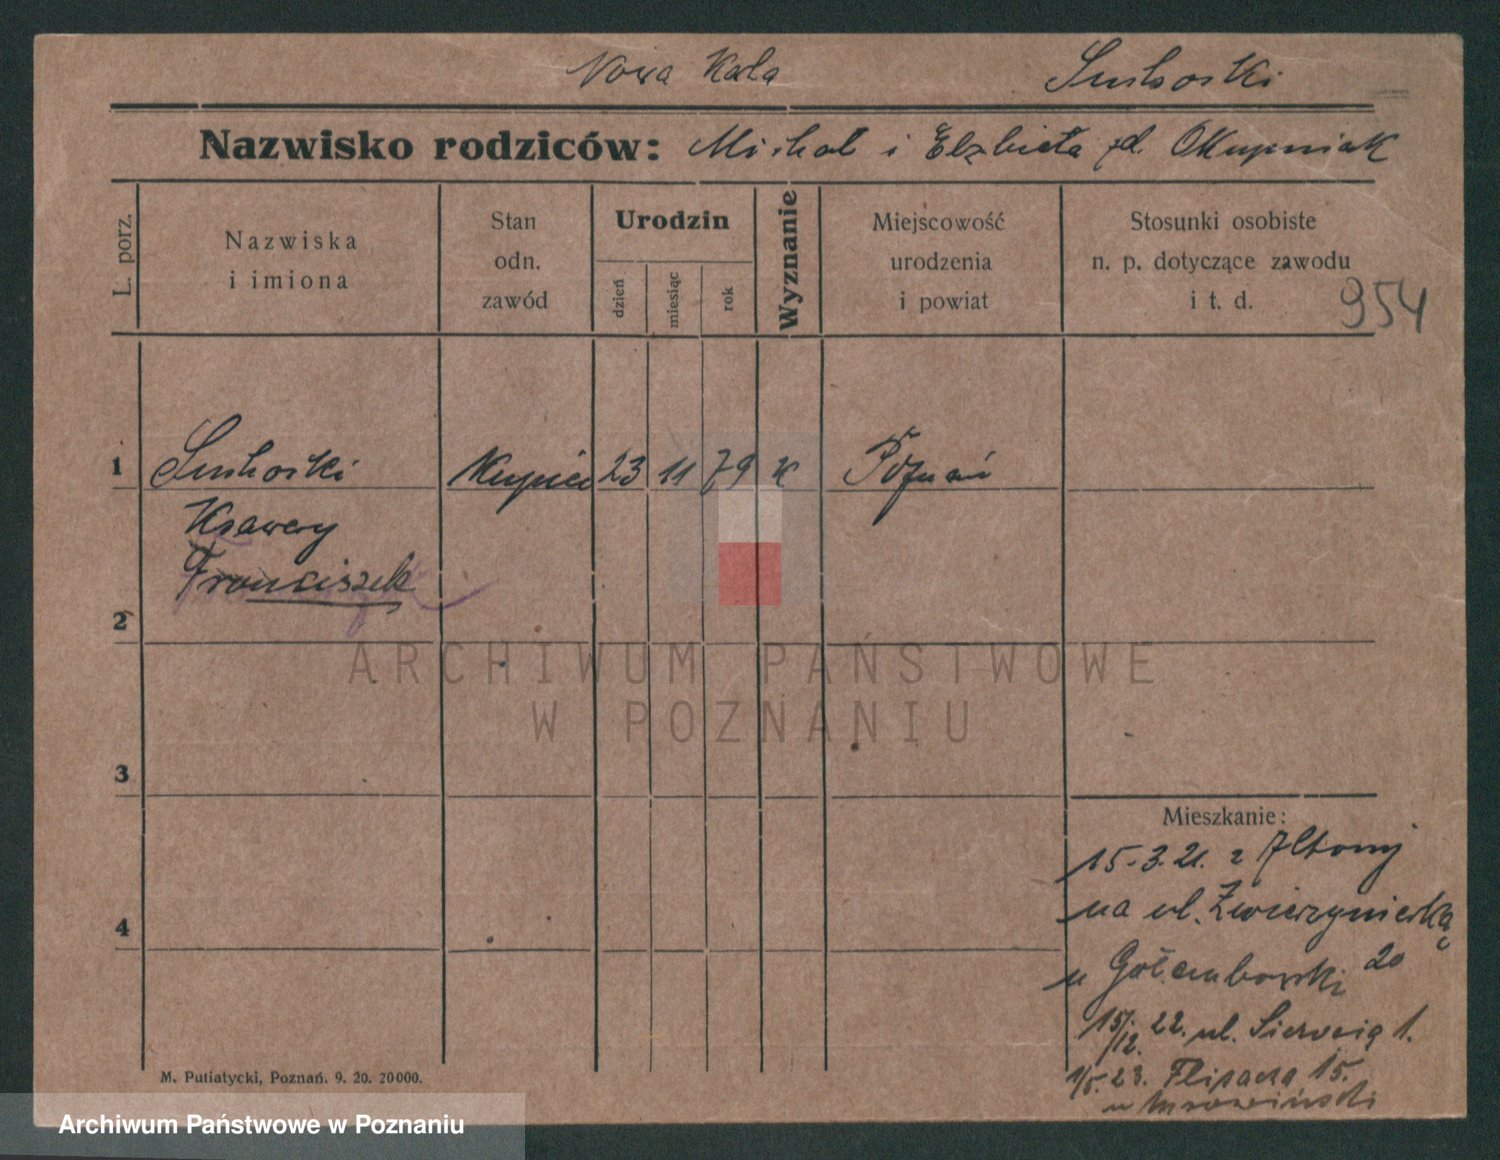 Nowa Karta Suchorski
Nazwisko rodziców: Michał i Elżbieta zd. Okupniak
L. porz.
Nazwiska
i imiona
Stan
odn.
zawód
Urodzin
dzień
miesiąc
rok
Wyznanie
Miejscowość
urodzenia
i powiat
Stosunki osobiste
n. p. dotyczące zawodu
i t. d.
954
1 Kupiec 23 11 79 k Poznań
Ksawery
Franciszek
2
3
4
Mieszkanie:
15.3.21. z
na ul. Zwierzyniecką
20
15/12. 22. ul. 1.
1/5. 23. 15.
M. Putiatycki, Poznań. 9. 20. 20000.
ARCHIWUM PAŃSTWOWE
W POZNANIU
Archiwum Państwowe w Poznaniu